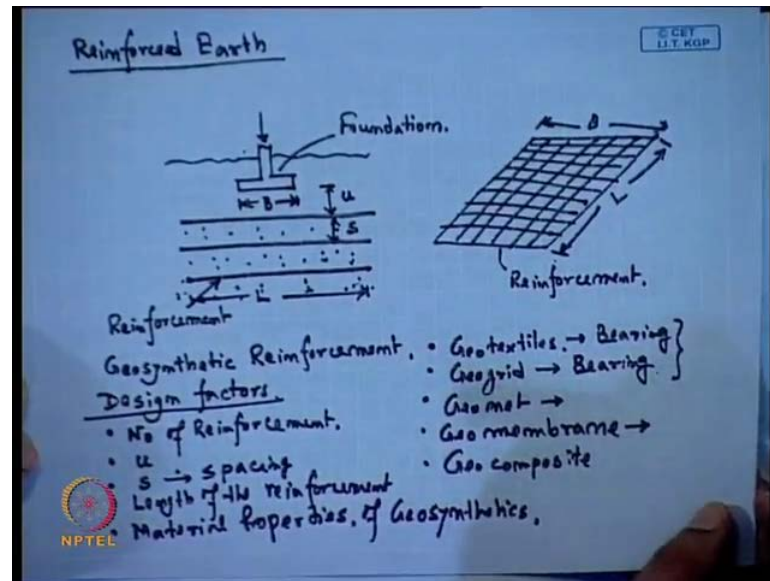 Reinforced Earth
© CET
I.I.T. KGP
Foundation.
B
u
s
L
Reinforcement
B
L
Reinforcement.
Geosynthetic Reinforcement.
• Geotextiles. → Bearing
• Geogrid → Bearing.
• Geo net →
• Geo membrane →
• Geo composite
Design factors.
• No of Reinforcement.
• u
• s → spacing
Length of the reinforcement
• Material Properties. of Geosynthetics.
NPTEL